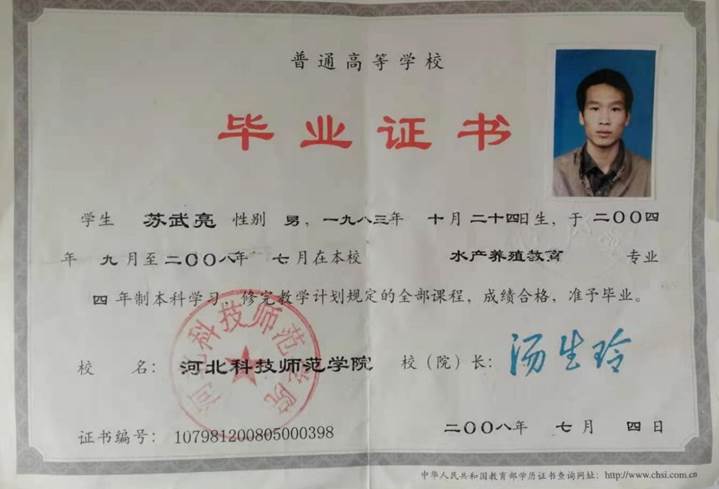 普通高等学校
毕业证书
学生 苏武亮 性别 男，一九八三年 十月二十四日生，于二〇〇四
年 九月至二〇〇八年 七月在本校 水产养殖教育 专业
四年制本科学习，修完教学计划规定的全部课程，成绩合格，准予毕业。
校 名：河北科技师范学院 校（院）长：汤生玲
河北科技师范学院
证书编号：107981200805000398 二〇〇八年 七月 四日
中华人民共和国教育部学历证书查询网址：http://www.chsi.com.cn